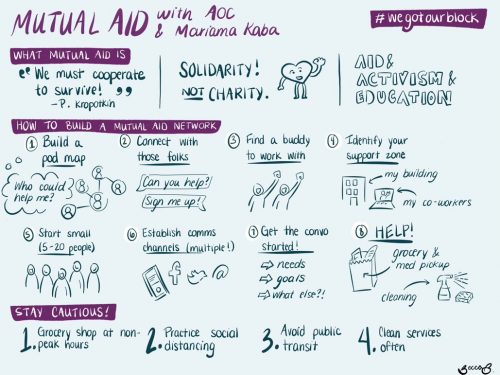 MUTUAL AID with AOC
& Mariama Kaba
#wegotourblock
WHAT MUTUAL AID IS
"We must cooperate
to survive!"
- P. Kropotkin
SOLIDARITY!
NOT CHARITY.
AID &
ACTIVISM &
EDUCATION
HOW TO BUILD A MUTUAL AID NETWORK
1 Build a
pod map
Who could
help me?
2 Connect with
those folks
Can you help?
Sign me up!
3 Find a buddy
to work with
4 Identify your
support zone
my building
my co-workers
5 Start small
(5-20 people)
6 Establish comms
channels (multiple!)
7 Get the convo
started!
⇨ needs
⇨ goals
⇨ what else?!
8 HELP!
grocery &
med pickup
cleaning
STAY CAUTIOUS!
1. Grocery shop at non-
peak hours
2. Practice social
distancing
3. Avoid public
transit
4. Clean services
often